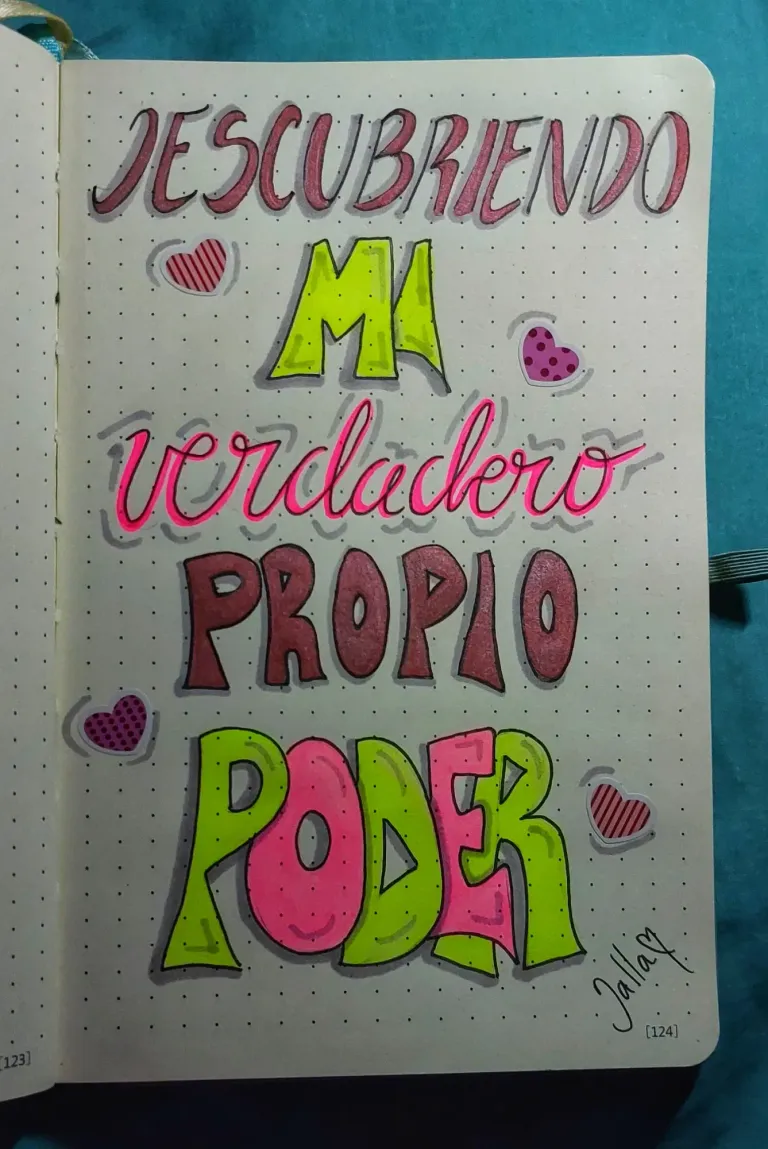 DESCUBRIENDO
MI
verdadero
PROPIO
PODER
Jalla
[123]
[124]